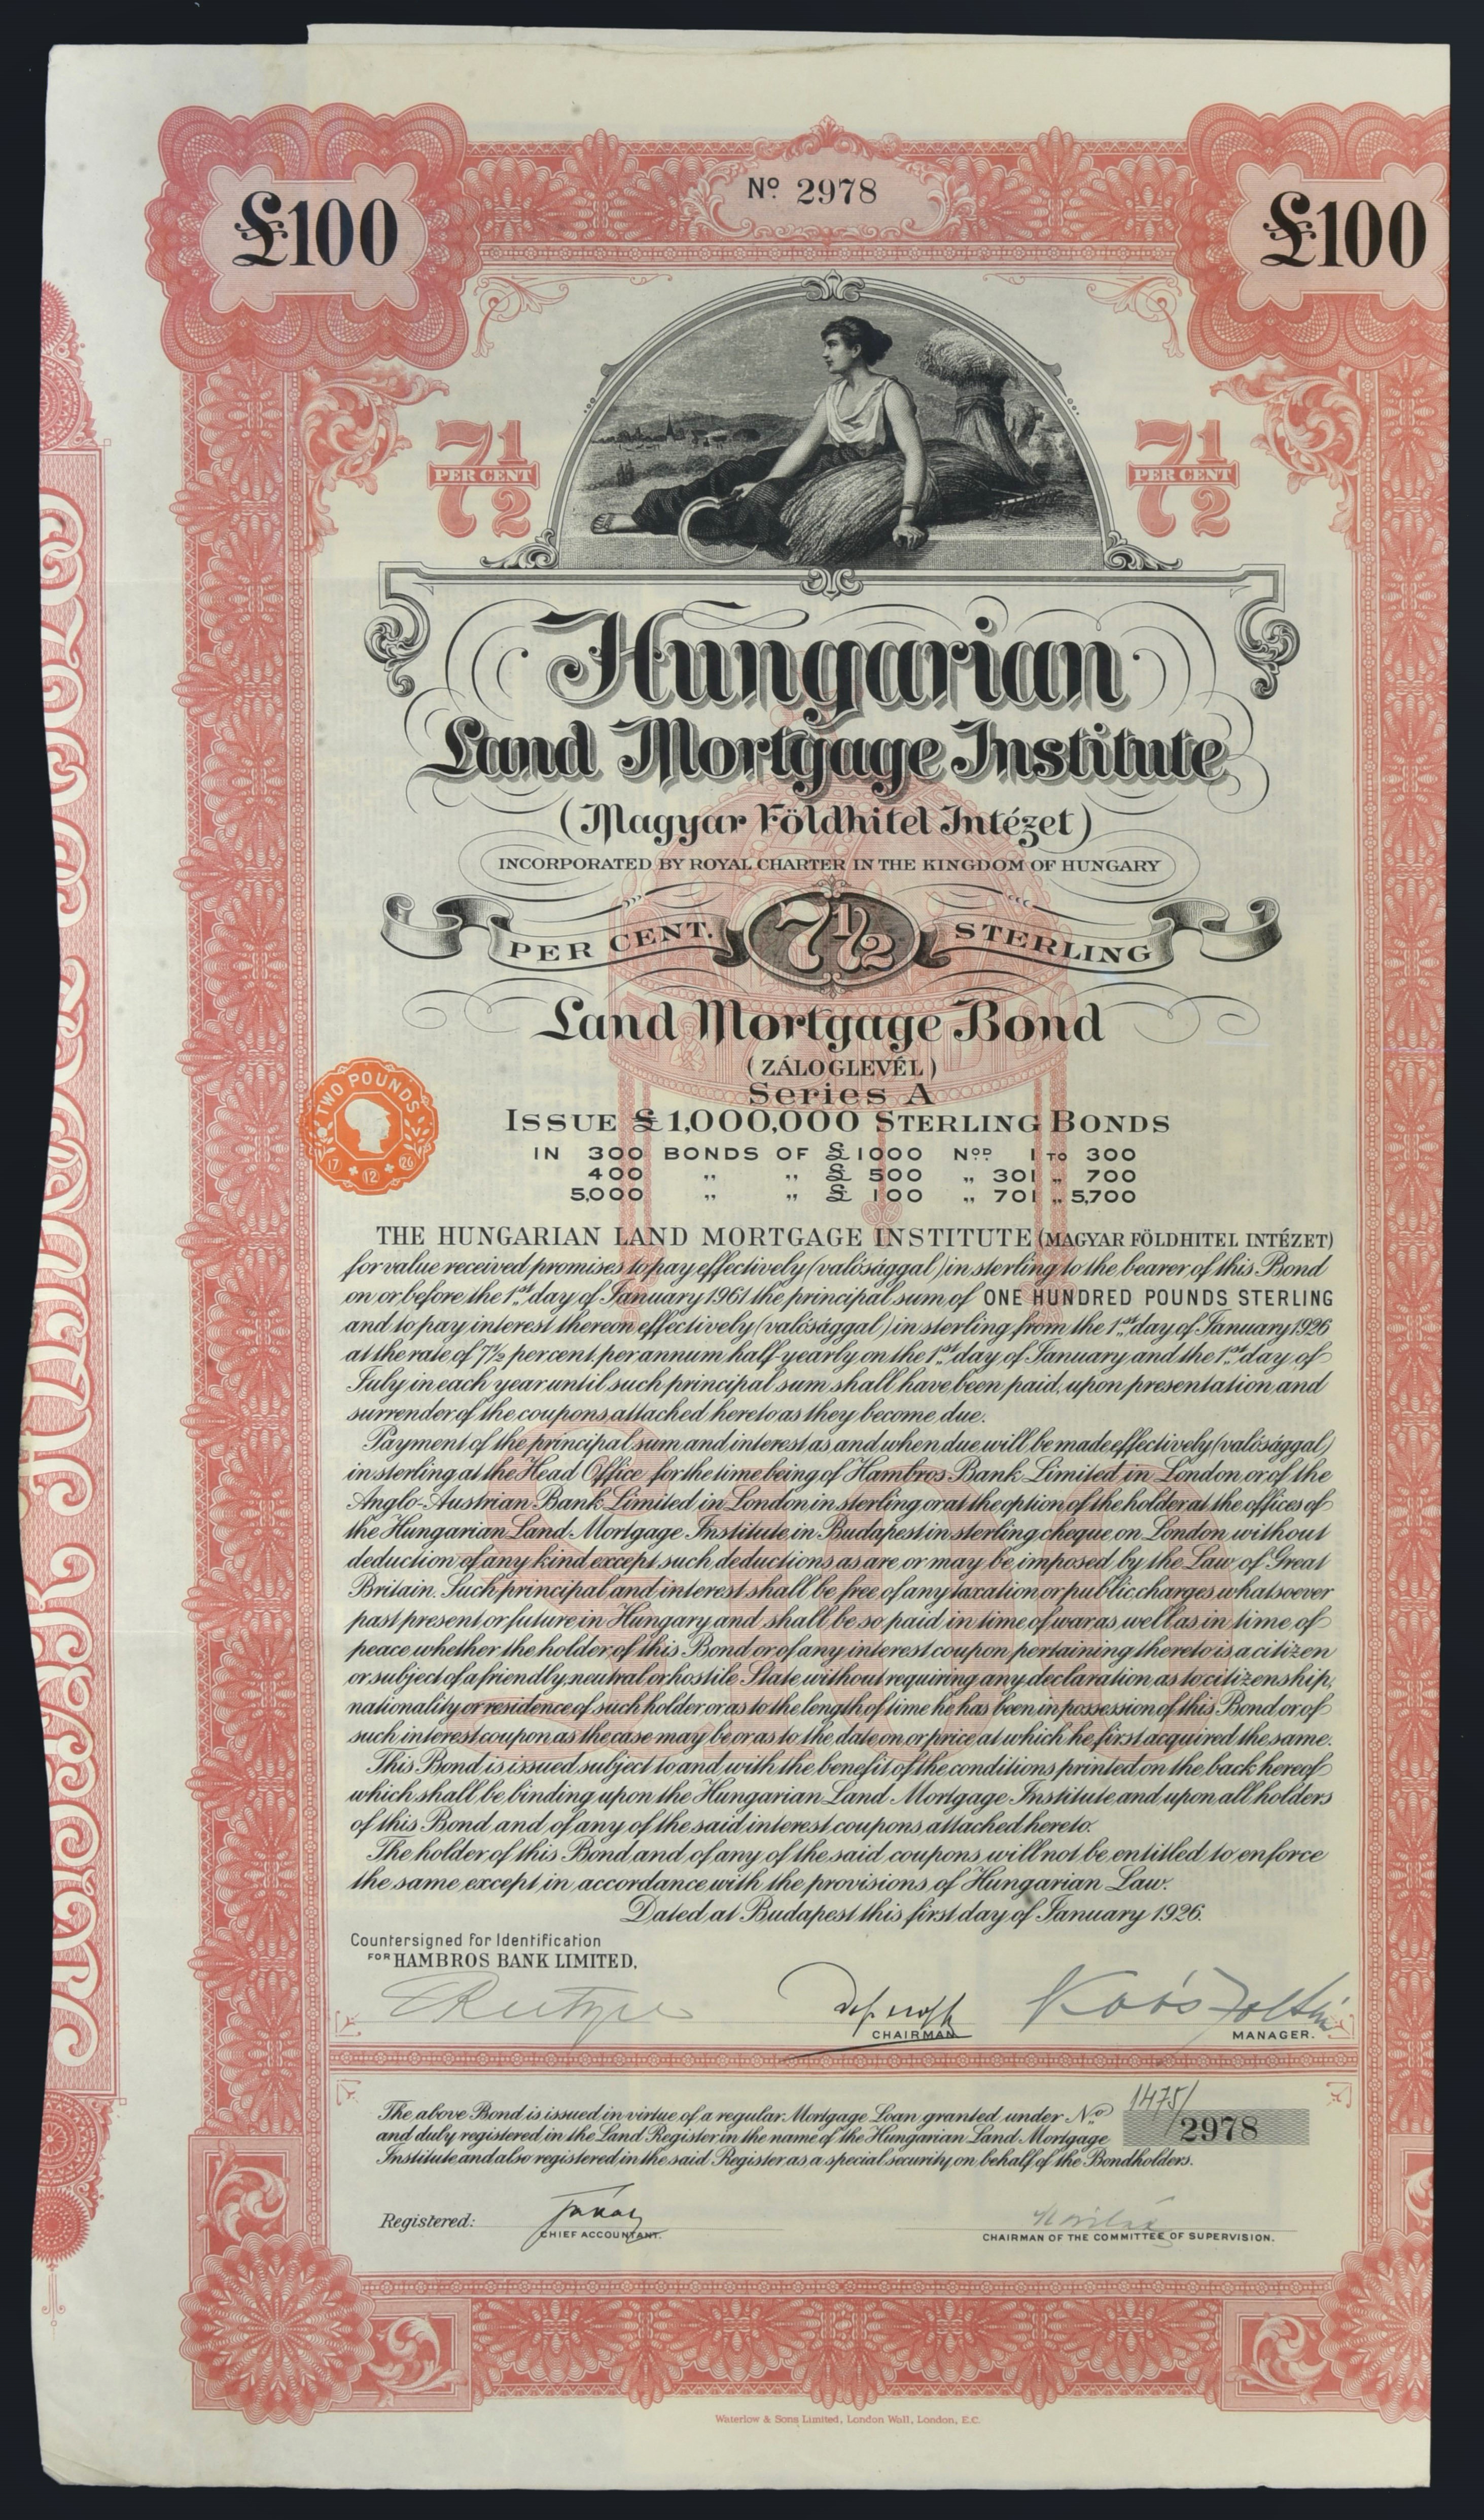 Nº 2978
£100 £100
7½ PER CENT 7½ PER CENT
Hungarian
Land Mortgage Institute
(Magyar Földhitel Intézet)
INCORPORATED BY ROYAL CHARTER IN THE KINGDOM OF HUNGARY
PER CENT. 7½ STERLING
Land Mortgage Bond
(ZÁLOGLEVÉL)
Series A
ISSUE £1,000,000 STERLING BONDS
IN 300 BONDS OF £1000 Nos 1 TO 300
400 „ „ £ 500 „ 301 „ 700
5,000 „ „ £ 100 „ 701 „ 5,700
TWO POUNDS
17 12 26
THE HUNGARIAN LAND MORTGAGE INSTITUTE (MAGYAR FÖLDHITEL INTÉZET)
for value received promises to pay effectively (valósággal) in sterling to the bearer of this Bond
on or before the 1st day of January 1961 the principal sum of ONE HUNDRED POUNDS STERLING
and to pay interest thereon effectively (valósággal) in sterling from the 1st day of January 1926
at the rate of 7½ per cent per annum half-yearly on the 1st day of January and the 1st day of
July in each year until such principal sum shall have been paid, upon presentation and
surrender of the coupons attached hereto as they become due.
Payment of the principal sum and interest as and when due will be made effectively (valósággal)
in sterling at the Head Office for the time being of Hambros Bank Limited in London or of the
Anglo-Austrian Bank Limited in London in sterling or at the option of the holder at the offices of
the Hungarian Land Mortgage Institute in Budapest in sterling cheque on London without
deduction of any kind except such deductions as are or may be imposed by the Law of Great
Britain. Such principal and interest shall be free of any taxation or public charges whatsoever
past present or future in Hungary and shall be so paid in time of war as well as in time of
peace whether the holder of this Bond or of any interest coupon pertaining thereto is a citizen
or subject of a friendly, neutral or hostile State without requiring any declaration as to citizenship,
nationality or residence of such holder or as to the length of time he has been in possession of this Bond or of
such interest coupon as the case may be or as to the date on, or price at which he first acquired the same.
This Bond is issued subject to and with the benefit of the conditions printed on the back hereof
which shall be binding upon the Hungarian Land Mortgage Institute and upon all holders
of this Bond and of any of the said interest coupons attached hereto.
The holder of this Bond and of any of the said coupons will not be entitled to enforce
the same except in accordance with the provisions of Hungarian Law.
Dated at Budapest this first day of January 1926.
Countersigned for Identification
FOR HAMBROS BANK LIMITED.
Koós Zoltán
CHAIRMAN MANAGER.
The above Bond is issued in virtue of a regular Mortgage Loan granted under No 1475/2978
and duly registered in the Land Register in the name of the Hungarian Land Mortgage
Institute and also registered in the said Register as a special security on behalf of the Bondholders.
Registered:
CHIEF ACCOUNTANT. CHAIRMAN OF THE COMMITTEE OF SUPERVISION.
Waterlow & Sons Limited, London Wall, London, E.C.